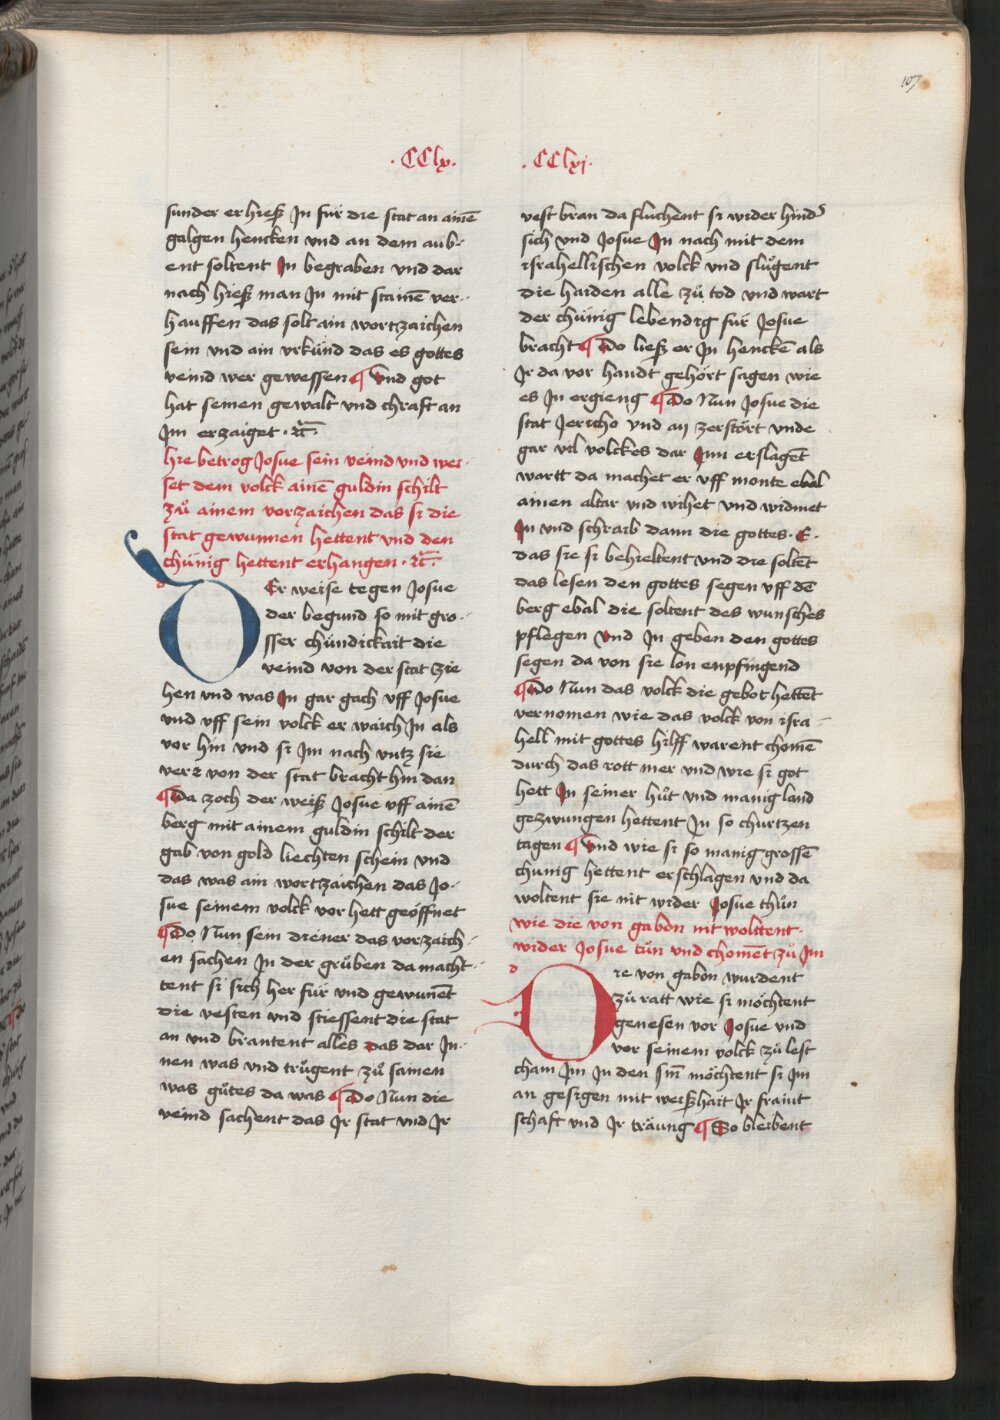 107
·CClx·
sunder er hieß Jn für die stat an ainē
galgen hencken vnd an dem aub-
ent soltent Jn begraben vnd dar
nach hieß man Jn mit stainē ver-
hauffen das solt ain wortzaichen
sein vnd ain vrkünd das es gottes
veind wer gewessen ¶ Vnd got
hat seinen gewalt vnd chraft an
Jm erzaiget ·
hie betrog Josue sein veind vnd wei-
set dem volck ainē guldin schilt
zů ainem vorzaichen das si die
stat gewunnen hettent vnd den
chünig hettent erhangen ·
DEr weise tegen Josue
der begund so mit gro-
sser chündickait die
veind von der stat zie
hen vnd was Jn gar gach vff Josue
vnd vff sein volck er waich Jn als
vor hin vnd si Jm nach vntz sie
verr von der stat bracht hin dan
¶ Da zoch der weiß Josue vff ainē
berg mit ainem guldin schilt der
gab von gold liechten schein vnd
das was ain wortzaichen das Jo-
sue seinem volck vor hett geöffnet
¶ Do Nun sein diener das vorzaich-
en sachen Jn der grůben da macht-
tent si sich her für vnd gewunēt
die vesten vnd stiessent die stat
an vnd brantent alles das dar Jn-
nen was vnd trůgent zů samen
was gůtes da was ¶ Do Nun die
veind sachent das Jr stat vnd Jr
·CClxj·
vest bran da fluchent si wider hind
sich vnd Josue Jn nach mit dem
israhellischen volck vnd slůgent
die haiden alle zů tod vnd wart
der chünig lebendig für Josue
bracht ¶ Do ließ er Jn henckē als
Jr da vor handt gehört sagen wie
es Jn ergieng ¶ Do Nun Josue die
stat Jericho vnd aÿ zerstört vnde
gar vil volckes dar Jnn erslagēt
wartt da machet er vff monte ebal
ainen altar vnd wihet vnd widmet
Jn vnd schraib dann die gottes · E ·
das sie si behieltent vnd die soltēt
das lesen den gottes segen vff dē
berg ebal die soltent des wunsches
pflegen vnd Jn geben den gottes
segen da von sie lon enpfingend
¶ Do Nun das volck die gebot hettēt
vernomen wie das volck von isra-
hell mit gottes hilff warent chomē
durch das rott mer vnd wie si got
hett Jn seiner hůt vnd manig land
gezwungen hettent Jn so churtzen
tagen ¶ Vnd wie si so manig grossē
chunig hettent erschlagen vnd da
woltent sie nit wider Josue thůn
wie die von gabon nit wolttent
wider Josue tůn vnd chomēt zů Jm
DIe von gabon wurdent
zů ratt wie si möchtent
genesen vor Josue vnd
vor seinem volck zů lest
cham Jm Jn den sin möchtent si Jm
an gesigen mit weißhait Jr fraint
schaft vnd Jr träung ¶ So bleibent